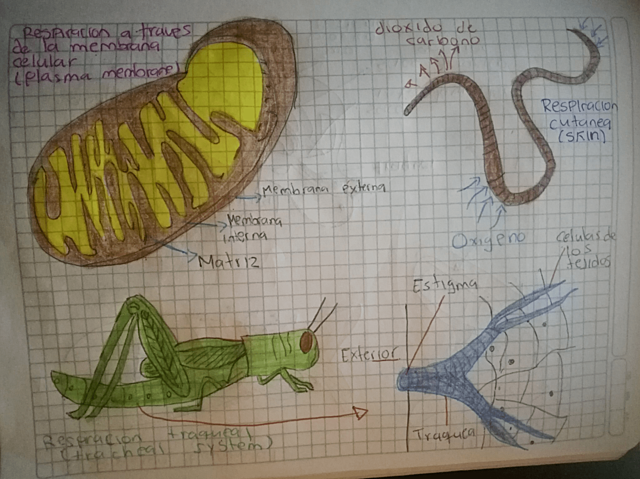 Respiración a través
de la membrana
celular
(plasma membrane)
dioxido de
carbono
Respiracion
cutanea
(skin)
Membrana externa
Membrana
interna
Matriz
Oxigeno
Celulas de
los
tejidos
Estigma
Exterior
Traquea
Respiración traqueal
(tracheal system)